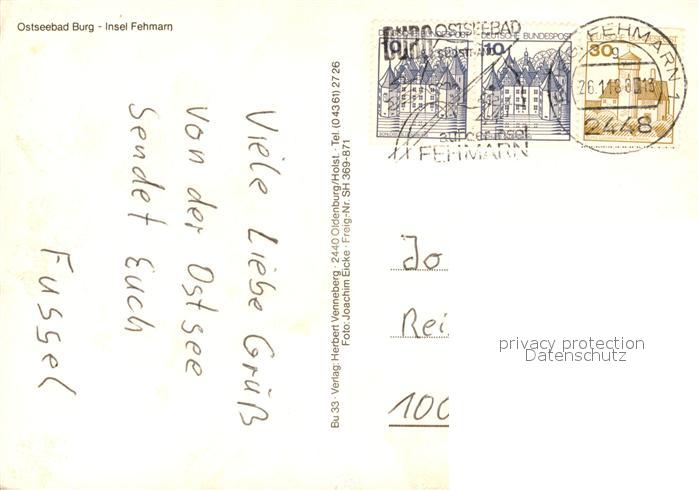 Ostseebad Burg - Insel Fehmarn
Viele Liebe Grüß
von der Ostsee
sendet Euch
Fussel
Bu 33 · Verlag: Herbert Venneberg · 2440 Oldenburg/Holst. · Tel. (0 43 61) 27 26
Foto: Joachim Eicke · Freig.-Nr. SH 369-871
DEUTSCHE BUNDESPOST
10
10
30
BURG OSTSEEBAD
SÜDSTRAND
auf der Insel
FEHMARN
FEHMARN 1
2448
Jo
Rei
100
privacy protection
Datenschutz